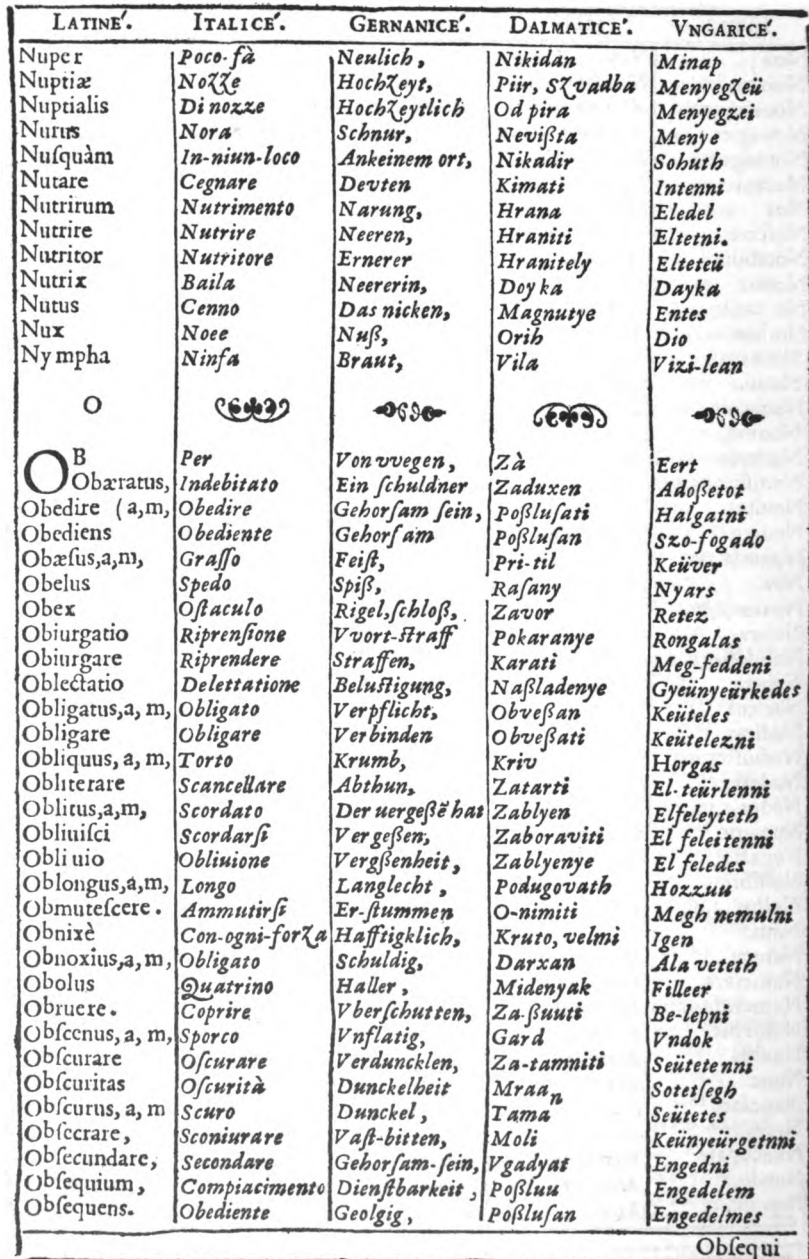 LATINE´. ITALICE´. GERNANICE´. DALMATICE´. VNGARICE´.
Nuper Poco-fà Neulich, Nikidan Minap
Nuptiæ Nozze Hochzeyt, Piir, Szvadba Menyegzeü
Nuptialis Di nozze Hochzeytlich Od pira Menyegzei
Nurus Nora Schnur, Nevißta Menye
Nuſquàm In-niun-loco Ankeinem ort, Nikadir Sohuth
Nutare Cegnare Devten Kimati Intenni
Nutrirum Nutrimento Narung, Hrana Eledel
Nutrire Nutrire Neeren, Hraniti Eltetni.
Nutritor Nutritore Ernerer Hranitely Elteteü
Nutrix Baila Neererin, Doyka Dayka
Nutus Cenno Das nicken, Magnutye Entes
Nux Noee Nuß, Orih Dio
Nympha Ninfa Braut, Vila Vizi-lean
O
OB Per Von vvegen, Zà Eert
Obæratus, Indebitato Ein ſchuldner Zaduxen Adoßetot
Obedire (a,m, Obedire Gehorſam ſein, Poßluſati Halgatni
Obediens Obediente Gehorſam Poßluſan Szo-fogado
Obæſus,a,m, Graſſo Feiſt, Pri-til Keüver
Obelus Spedo Spiß, Raſany Nyars
Obex Oſtaculo Rigel,ſchloß, Zavor Retez
Obiurgatio Riprenſione Vvort-ſtraff Pokaranye Rongalas
Obiurgare Riprendere Straffen, Karati Meg-feddeni
Oblectatio Delettatione Beluſtigung, Naßladenye Gyeünyeürkedes
Obligatus,a, m, Obligato Verpflicht, Obveßan Keüteles
Obligare Obligare Verbinden Obveßati Keütelezni
Obliquus, a, m, Torto Krumb, Kriv Horgas
Obliterare Scancellare Abthun, Zatarti El-teürlenni
Oblitus,a,m, Scordato Der uergeßẽ hat Zablyen Elfeleyteth
Obliuiſci Scordarſi Vergeßen, Zaboraviti El feleitenni
Obliuio Obliuione Vergßenheit, Zablyenye El feledes
Oblongus,a,m, Longo Langlecht, Podugovath Hozzuu
Obmuteſcere. Ammutirſi Er-ſtummen O-nimiti Megh nemulni
Obnixè Con-ogni-forza Hafftigklich, Kruto, velmi Igen
Obnoxius,a, m, Obligato Schuldig, Darxan Ala veteth
Obolus Quatrino Haller, Midenyak Filleer
Obruere. Coprire Vberſchutten, Za-ßuuti Be-lepni
Obſcenus, a, m, Sporco Vnflatig, Gard Vndok
Obſcurare Oſcurare Verduncklen, Za-tamniti Seütetenni
Obſcuritas Oſcurità Dunckelheit Mraan Sotetſegh
Obſcurus, a, m Scuro Dunckel, Tama Seütetes
Obſecrare, Sconiurare Vaſt-bitten, Moli Keünyeürgetnni
Obſecundare, Secondare Gehorſam-ſein, Vgadyat Engedni
Obſequium, Compiacimento Dienſtbarkeit, Poßluu Engedelem
Obſequens. Obediente Geolgig, Poßluſan Engedelmes
Obſequi